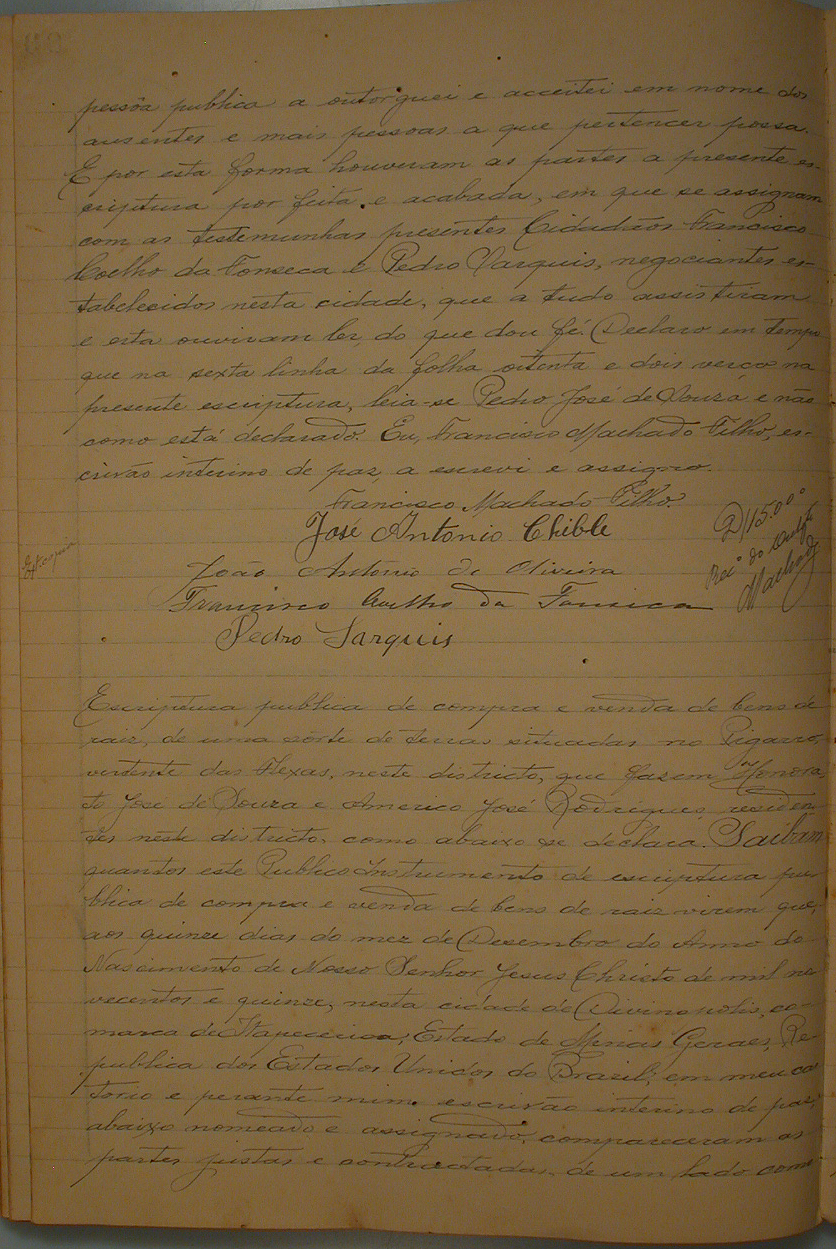 pessôa publica a outorguei e acceitei em nome dos
ausentes e mais pessoas a que pertencer possa.
E por esta forma houveram as partes a presente es-
criptura por feita e acabada, em que se assignam
com as testemunhas presentes Cidadãos Francisco
Coelho da Fonseca e Pedro Sarquis, negociantes es-
tabelecidos nesta cidade, que a tudo assistiram
e esta ouviram ler, do que dou fé. Declaro em tempo
que na sexta linha da folha oitenta e dois verso na
presente escriptura, leia-se Pedro José de Souza e não
como está declarado. Eu, Francisco Machado Filho, es-
crivão interino de paz, a escrevi e assigno.
Francisco Machado Filho.
José Antonio Chible
João Antônio de Oliveira
Francisco Coelho da Fonseca
Pedro Sarquis
D 15.000
Machado
Escriptura publica de compra e venda de bens de
raiz, de uma sorte de terras situadas no Pigarro,
vertente das Flexas, neste districto, que fasem Honora-
to José de Souza e Americo José Rodrigues, residen-
tes neste districto, como abaixo se declara. Saibam
quantos este Publico Instrumento de escriptura pu-
blica de compra e venda de bens de raiz virem que,
aos quinze dias do mez de Desembro do Anno do
Nascimento de Nosso Senhor Jesus Christo de mil no-
vecentos e quinze, nesta cidade de Divinopolis, co-
marca de Itapecerica, Estado de Minas Geraes, Re-
publica dos Estados Unidos do Brasil, em meu car-
torio e perante mim escrivão interino de paz,
abaixo nomeado e assignado, compareceram as
partes justas e contractadas, de um lado como